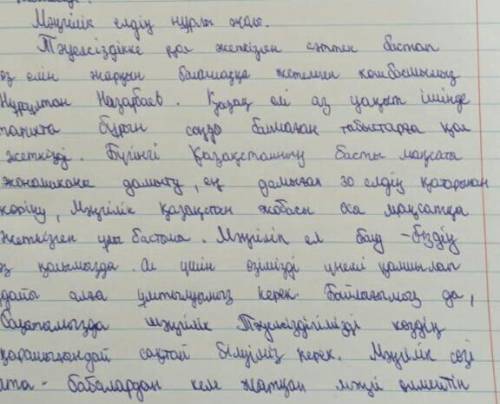 Мәңгілік елдің нұрлы жолы.
Тәуелсіздікке қол жеткізген сәттен бастап
өз елін жарқын болашаққа жетелеген көшбасшымыз
Нұрсұлтан Назарбаев. Қазақ елі аз уақыт ішінде
тарихта бұрын соңды болмаған табыстарға қол
жеткізді. Бүгінгі Қазақстанның басты мақсаты
экономиканы дамыту, ең дамыған 30 елдің қатарынан
көріну, Мәңгілік қазақстан жобасы осы мақсатқа
жеткізген ұлы бастама. Мәңгілік ел болу - біздің
өз қолымызда. Ол үшін өзімізді үнемі қамшылап
дайы алға ұмтылуымыз керек. Байлығымыз да,
Бақытымызда мәңгілік Тәуелсіздігімізді көздің
қарашығындай сақтай білуіміз керек. Мәңгілік сөзі
ата - бабалардан келе жатқан мәңгі өлмейтін